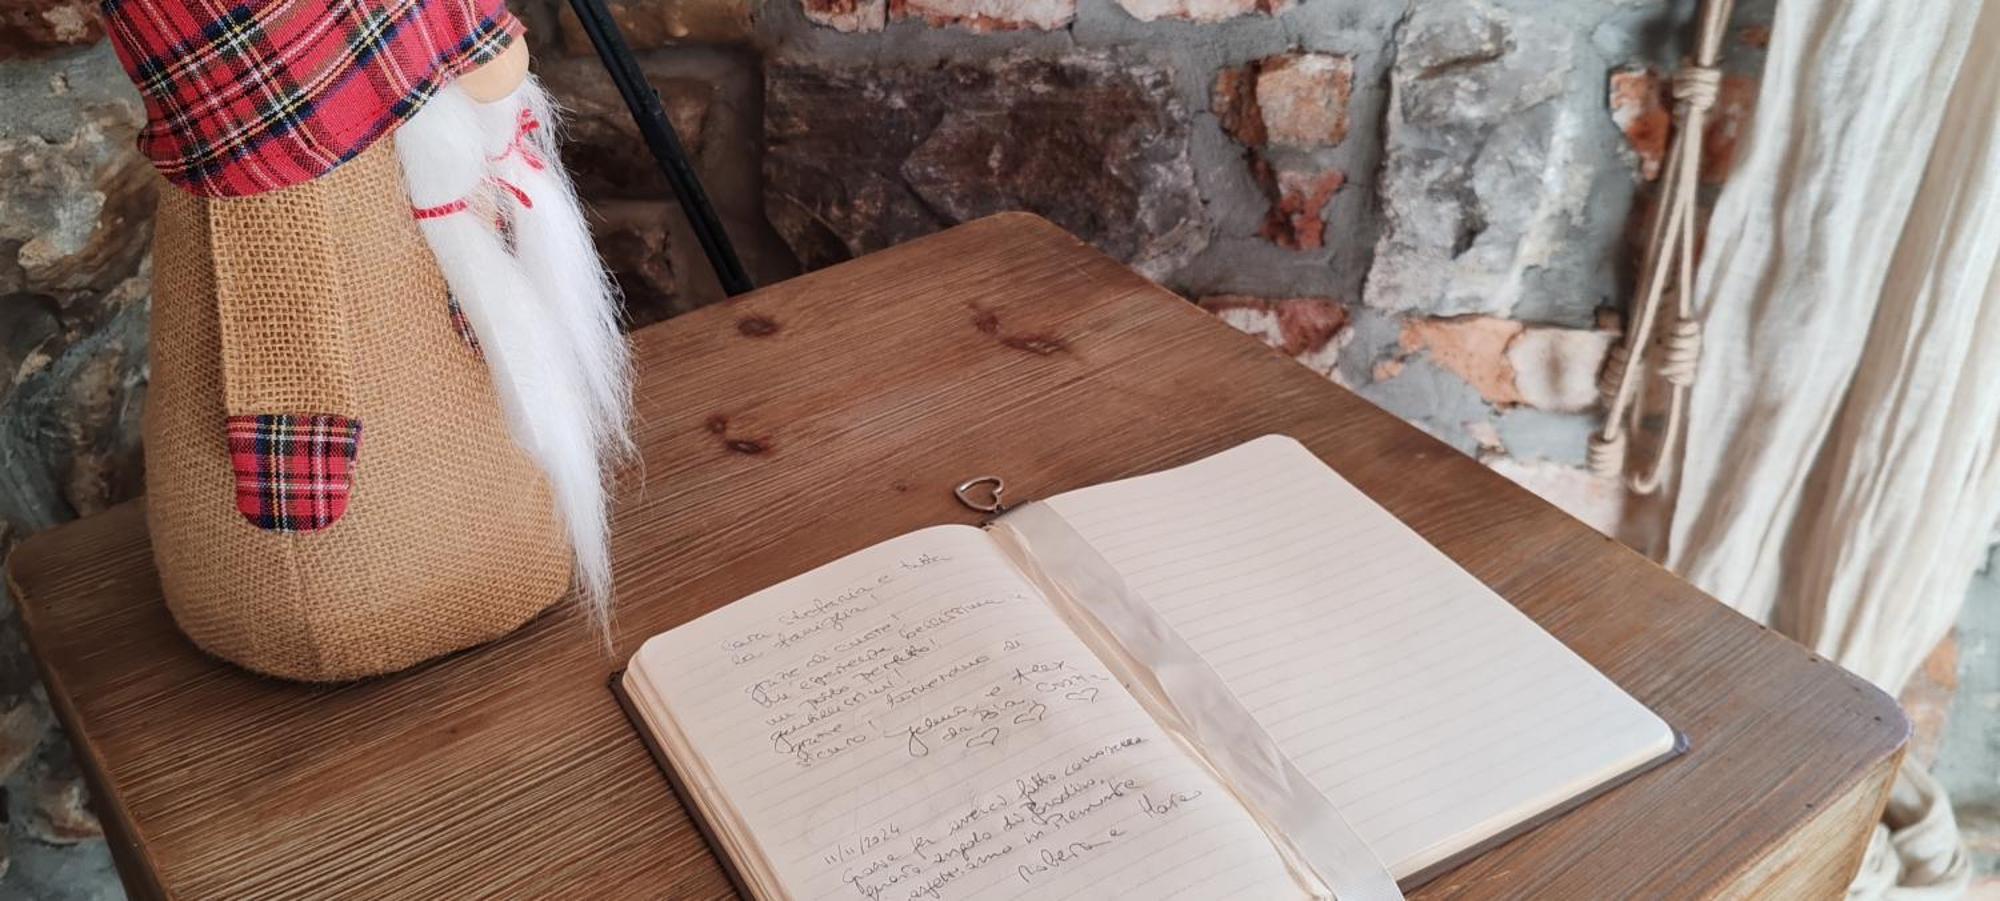 Cara Stefania e tutta
la famiglia!
Grazie di cuore!
Un'esperienza bellissima e
un posto perfetto!
gentilissimi!
Grazie! Torneremo di
sicuro! e Alex
da
11/11/2024
Grazie per averci fatto conoscere
questo angolo di Paradiso,
aspettiamo in Piemonte
Roberta e